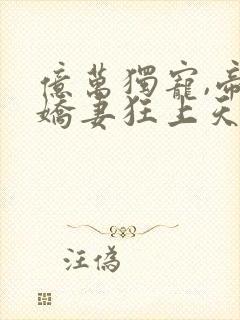 億萬獨寵,帝
嬌妻狂上天
汪偽